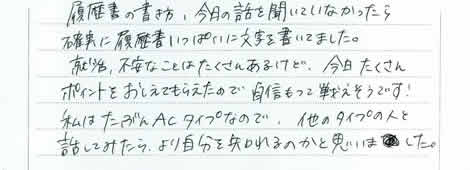 履歴書の書き方、今日の話を聞いていなかったら
確実に履歴書いっぱいに文字を書いてました。
就活、不安なことはたくさんあるけど、今日たくさん
ポイントをおしえてもらえたので自信もって戦えそうです!
私はたぶんACタイプなので、他のタイプの人と
話してみたら、より自分を知れるのかと思いました。